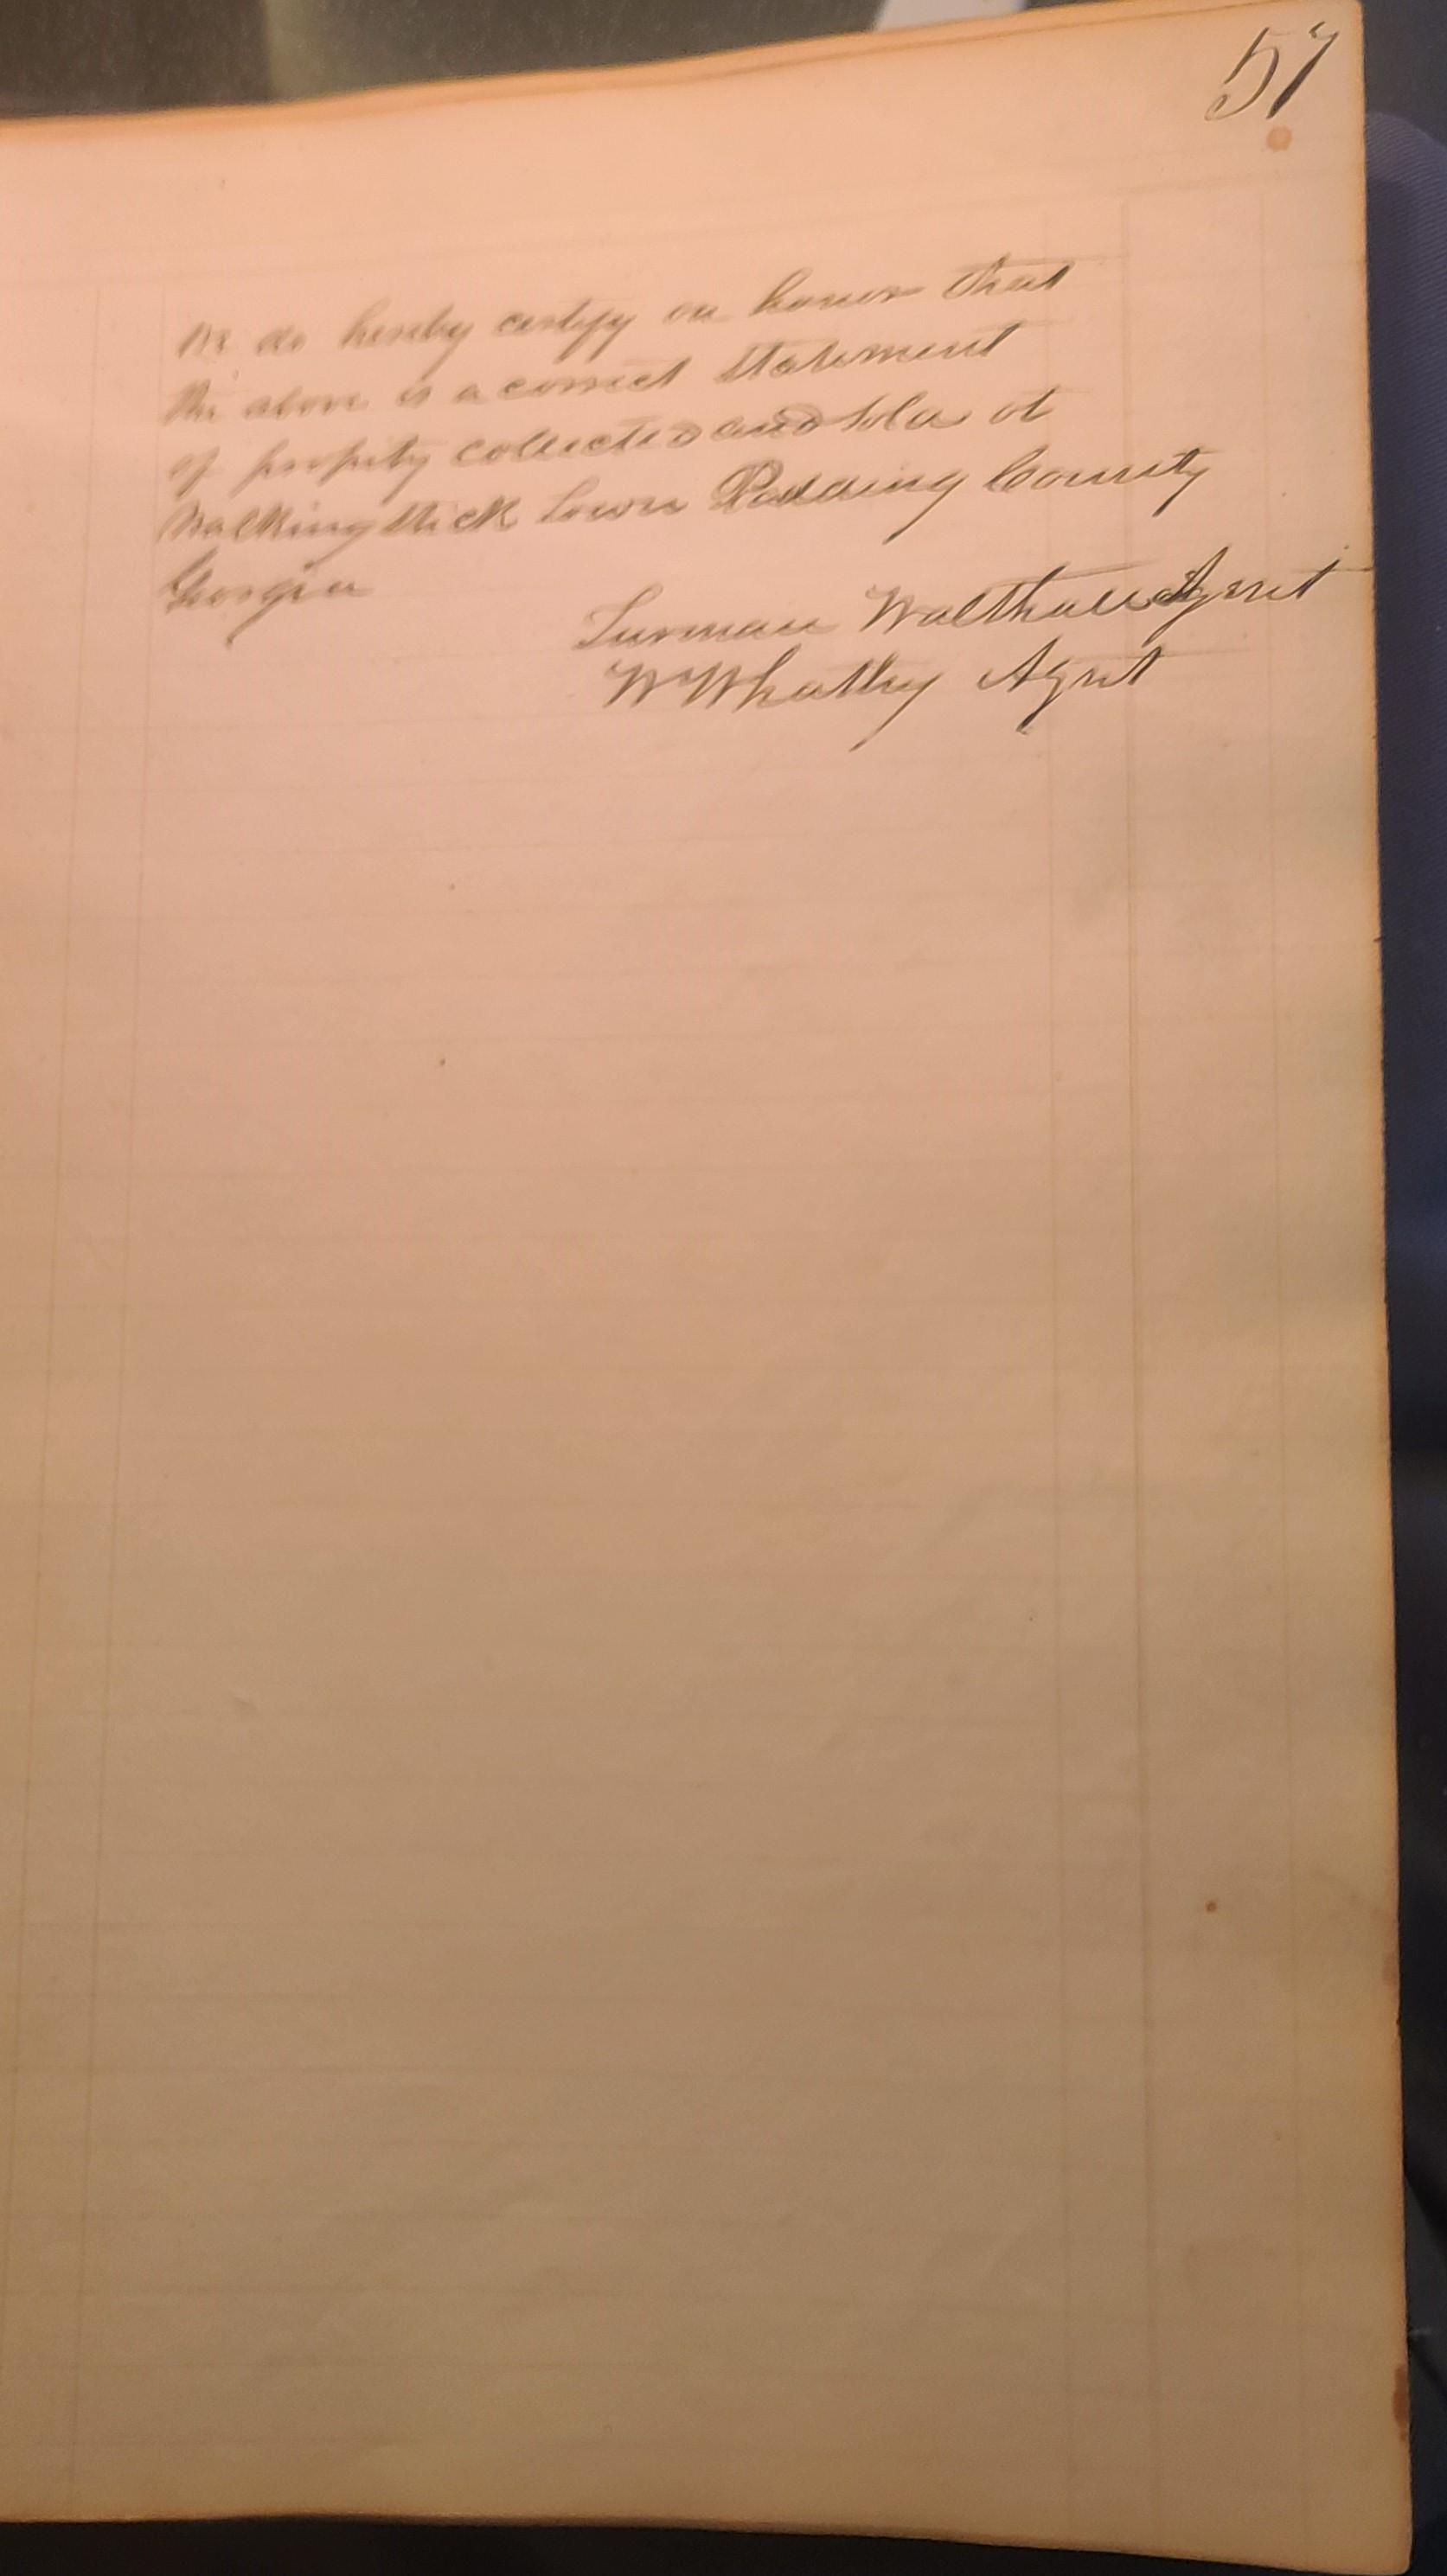 57
We do hereby certify on honor that
the above is a correct statement
of property collected and sold at
Walkingstick Town Paulding County
Georgia
Turman Walthall Agent
W Whatley Agent